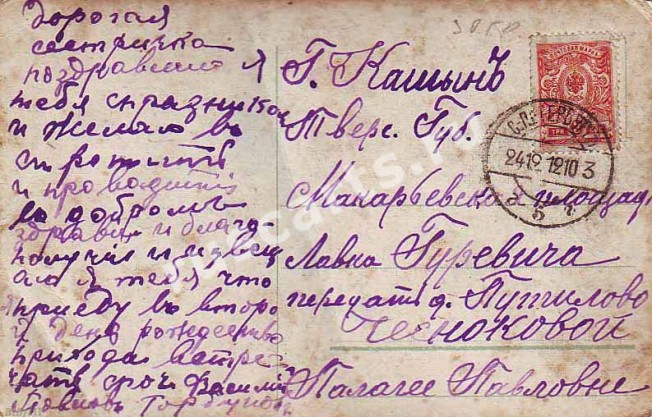 Дорогая
сестричка
поздравляю я
тебя с праздником
и желаю в
и проводить
в добромъ
здравіи и благо
получіи и извещ
аю я тебя что
приеду во второ
й день рождество
приходи встре
чать
Горбуновъ
Г. Кашынъ
Тверс. Губ.
Макарьевска площад
Лавка Гуревича
передат д. Путилово
Чесноковой
Палагее Павловне
С.ПЕТЕРБУРГЪ
24 12 12 10 3